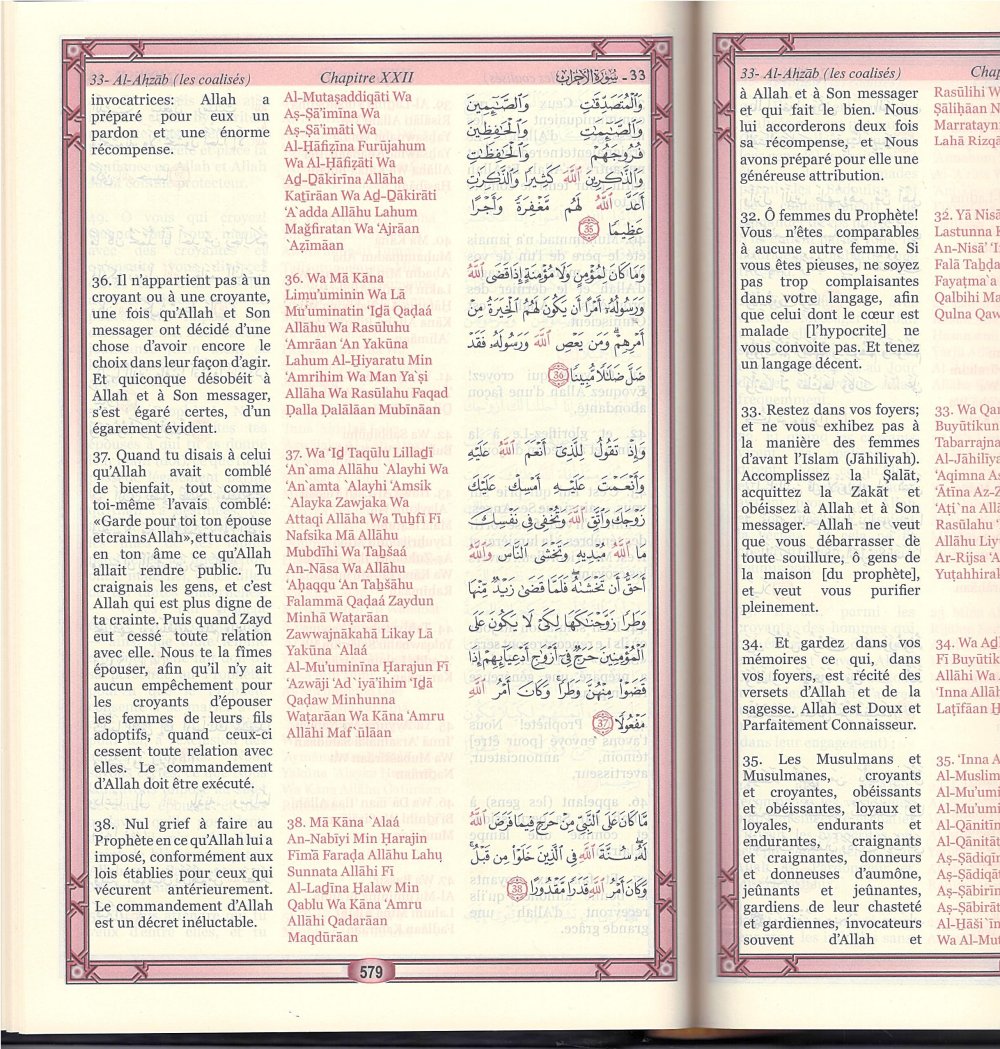 33- Al-Aḥzāb (les coalisés)
Chapitre XXII
33 - سُورَةُ الأَحْزَابِ
invocatrices: Allah a
préparé pour eux un
pardon et une énorme
récompense.
36. Il n'appartient pas à un
croyant ou à une croyante,
une fois qu'Allah et Son
messager ont décidé d'une
chose d'avoir encore le
choix dans leur façon d'agir.
Et quiconque désobéit à
Allah et à Son messager,
s'est égaré certes, d'un
égarement évident.
37. Quand tu disais à celui
qu'Allah avait comblé
de bienfait, tout comme
toi-même l'avais comblé:
«Garde pour toi ton épouse
et crains Allah», et tu cachais
en ton âme ce qu'Allah
allait rendre public. Tu
craignais les gens, et c'est
Allah qui est plus digne de
ta crainte. Puis quand Zayd
eut cessé toute relation
avec elle. Nous te la fîmes
épouser, afin qu'il n'y ait
aucun empêchement pour
les croyants d'épouser
les femmes de leurs fils
adoptifs, quand ceux-ci
cessent toute relation avec
elles. Le commandement
d'Allah doit être exécuté.
38. Nul grief à faire au
Prophète en ce qu'Allah lui a
imposé, conformément aux
lois établies pour ceux qui
vécurent antérieurement.
Le commandement d'Allah
est un décret inéluctable.
Al-Mutaṣaddiqāti Wa
Aṣ-Ṣā'imīna Wa
Aṣ-Ṣā'imāti Wa
Al-Ḥāfiẓīna Furūjahum
Wa Al-Ḥāfiẓāti Wa
Aḏ-Ḏākirīna Allāha
Kaṯīrāan Wa Aḏ-Ḏākirāti
'A`adda Allāhu Lahum
Mağfiratan Wa 'Ajrāan
`Aẓīmāan
36. Wa Mā Kāna
Limu'uminin Wa Lā
Mu'uminatin 'Iḏā Qaḍaá
Allāhu Wa Rasūluhu
'Amrāan 'An Yakūna
Lahum Al-Ḫiyaratu Min
'Amrihim Wa Man Ya`şi
Allāha Wa Rasūlahu Faqad
Ḍalla Ḍalālāan Mubīnāan
37. Wa 'Iḏ Taqūlu Lillaḏī
'An`ama Allāhu `Alayhi Wa
'An`amta `Alayhi 'Amsik
`Alayka Zawjaka Wa
Attaqi Allāha Wa Tuḫfī Fī
Nafsika Mā Allāhu
Mubdīhi Wa Taḫšaá
An-Nāsa Wa Allāhu
'Aḥaqqu 'An Taḫšāhu
Falammā Qaḍaá Zaydun
Minhā Waṭarāan
Zawwajnākahā Likay Lā
Yakūna `Alaá
Al-Mu'uminīna Ḥarajun Fī
'Azwāji 'Ad`iyā'ihim 'Iḏā
Qaḍaw Minhunna
Waṭarāan Wa Kāna 'Amru
Allāhi Maf`ūlāan
38. Mā Kāna `Alaá
An-Nabīyi Min Ḥarajin
Fīmā Faraḍa Allāhu Lahu
Sunnata Allāhi Fī
Al-Laḏīna Ḫalaw Min
Qablu Wa Kāna 'Amru
Allāhi Qadarāan
Maqdūrāan
وَٱلْمُتَصَدِّقَٰتِ وَٱلصَّٰٓئِمِينَ
وَٱلصَّٰٓئِمَٰتِ وَٱلْحَٰفِظِينَ
فُرُوجَهُمْ وَٱلْحَٰفِظَٰتِ
وَٱلذَّٰكِرِينَ ٱللَّهَ كَثِيرًا وَٱلذَّٰكِرَٰتِ
أَعَدَّ ٱللَّهُ لَهُم مَّغْفِرَةً وَأَجْرًا
عَظِيمًا 35
وَمَا كَانَ لِمُؤْمِنٍ وَلَا مُؤْمِنَةٍ إِذَا قَضَى ٱللَّهُ
وَرَسُولُهُۥٓ أَمْرًا أَن يَكُونَ لَهُمُ ٱلْخِيَرَةُ مِنْ
أَمْرِهِمْ وَمَن يَعْصِ ٱللَّهَ وَرَسُولَهُۥ فَقَدْ
ضَلَّ ضَلَٰلًا مُّبِينًا 36
وَإِذْ تَقُولُ لِلَّذِىٓ أَنْعَمَ ٱللَّهُ عَلَيْهِ
وَأَنْعَمْتَ عَلَيْهِ أَمْسِكْ عَلَيْكَ
زَوْجَكَ وَٱتَّقِ ٱللَّهَ وَتُخْفِى فِى نَفْسِكَ
مَا ٱللَّهُ مُبْدِيهِ وَتَخْشَى ٱلنَّاسَ وَٱللَّهُ
أَحَقُّ أَن تَخْشَىٰهُ فَلَمَّا قَضَىٰ زَيْدٌ مِّنْهَا
وَطَرًا زَوَّجْنَٰكَهَا لِكَىْ لَا يَكُونَ عَلَى
ٱلْمُؤْمِنِينَ حَرَجٌ فِىٓ أَزْوَٰجِ أَدْعِيَآئِهِمْ إِذَا
قَضَوْا۟ مِنْهُنَّ وَطَرًا وَكَانَ أَمْرُ ٱللَّهِ
مَفْعُولًا 37
مَّا كَانَ عَلَى ٱلنَّبِىِّ مِنْ حَرَجٍ فِيمَا فَرَضَ ٱللَّهُ
لَهُۥ سُنَّةَ ٱللَّهِ فِى ٱلَّذِينَ خَلَوْا۟ مِن قَبْلُ
وَكَانَ أَمْرُ ٱللَّهِ قَدَرًا مَّقْدُورًا 38
579
33- Al-Aḥzāb (les coalisés)
Chap
à Allah et à Son messager
et qui fait le bien. Nous
lui accorderons deux fois
sa récompense, et Nous
avons préparé pour elle une
généreuse attribution.
32. Ô femmes du Prophète!
Vous n'êtes comparables
à aucune autre femme. Si
vous êtes pieuses, ne soyez
pas trop complaisantes
dans votre langage, afin
que celui dont le cœur est
malade [l'hypocrite] ne
vous convoite pas. Et tenez
un langage décent.
33. Restez dans vos foyers;
et ne vous exhibez pas à
la manière des femmes
d'avant l'Islam (Jāhiliyah).
Accomplissez la Ṣalāt,
acquittez la Zakāt et
obéissez à Allah et à Son
messager. Allah ne veut
que vous débarrasser de
toute souillure, ô gens de
la maison [du prophète],
et veut vous purifier
pleinement.
34. Et gardez dans vos
mémoires ce qui, dans
vos foyers, est récité des
versets d'Allah et de la
sagesse. Allah est Doux et
Parfaitement Connaisseur.
35. Les Musulmans et
Musulmanes, croyants
et croyantes, obéissants
et obéissantes, loyaux et
loyales, endurants et
endurantes, craignants
et craignantes, donneurs
et donneuses d'aumône,
jeûnants et jeûnantes,
gardiens de leur chasteté
et gardiennes, invocateurs
souvent d'Allah et
Rasūlihi W
Ṣāliḥāan N
Marratayn
Lahā Rizqā
32. Yā Nisā
Lastunna K
An-Nisā' 'I
Falā Taḫḍa
Fayaṭma`a
Qalbihi Ma
Qulna Qaw
33. Wa Qar
Buyūtikun
Tabarrajna
Al-Jāhilīya
'Aqimna As
'Ātīna Az-Z
'Aṭi`na Allā
Rasūlahu '
Allāhu Liy
Ar-Rijsa 'A
Yuṭahhiral
34. Wa Aḏ
Fī Buyūtik
Allāhi Wa
'Inna Allāh
Laṭīfāan Ḫ
35. 'Inna A
Al-Muslim
Al-Mu'umi
Al-Mu'umi
Al-Qānitīn
Al-Qānitāt
Aṣ-Ṣādiqīn
Aṣ-Ṣādiqāt
Aṣ-Ṣābirīn
Aṣ-Ṣābirāt
Al-Ḫāši`īn
Wa Al-Mut